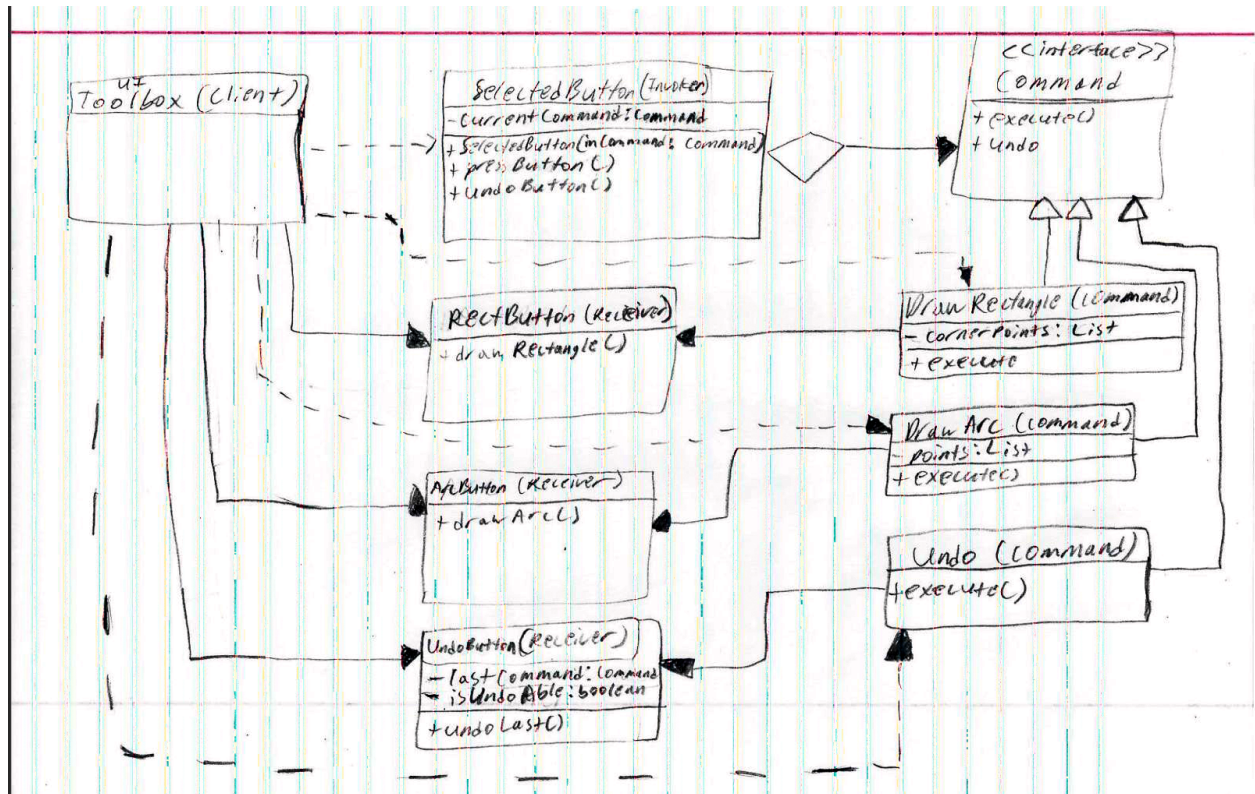 UI
Toolbox (Client)
SelectedButton (Invoker)
- currentCommand: Command
+ SelectedButton(inCommand: Command)
+ pressButton()
+ undoButton()
<<interface>>
Command
+ execute()
+ undo
RectButton (Receiver)
+ draw Rectangle()
Draw Rectangle (Command)
- cornerPoints: List
+ execute
Draw Arc (Command)
- points: List
+ execute()
ArcButton (Receiver)
+ drawArc()
Undo (Command)
+ execute()
UndoButton (Receiver)
- lastCommand: Command
- isUndoAble: boolean
+ undoLast()